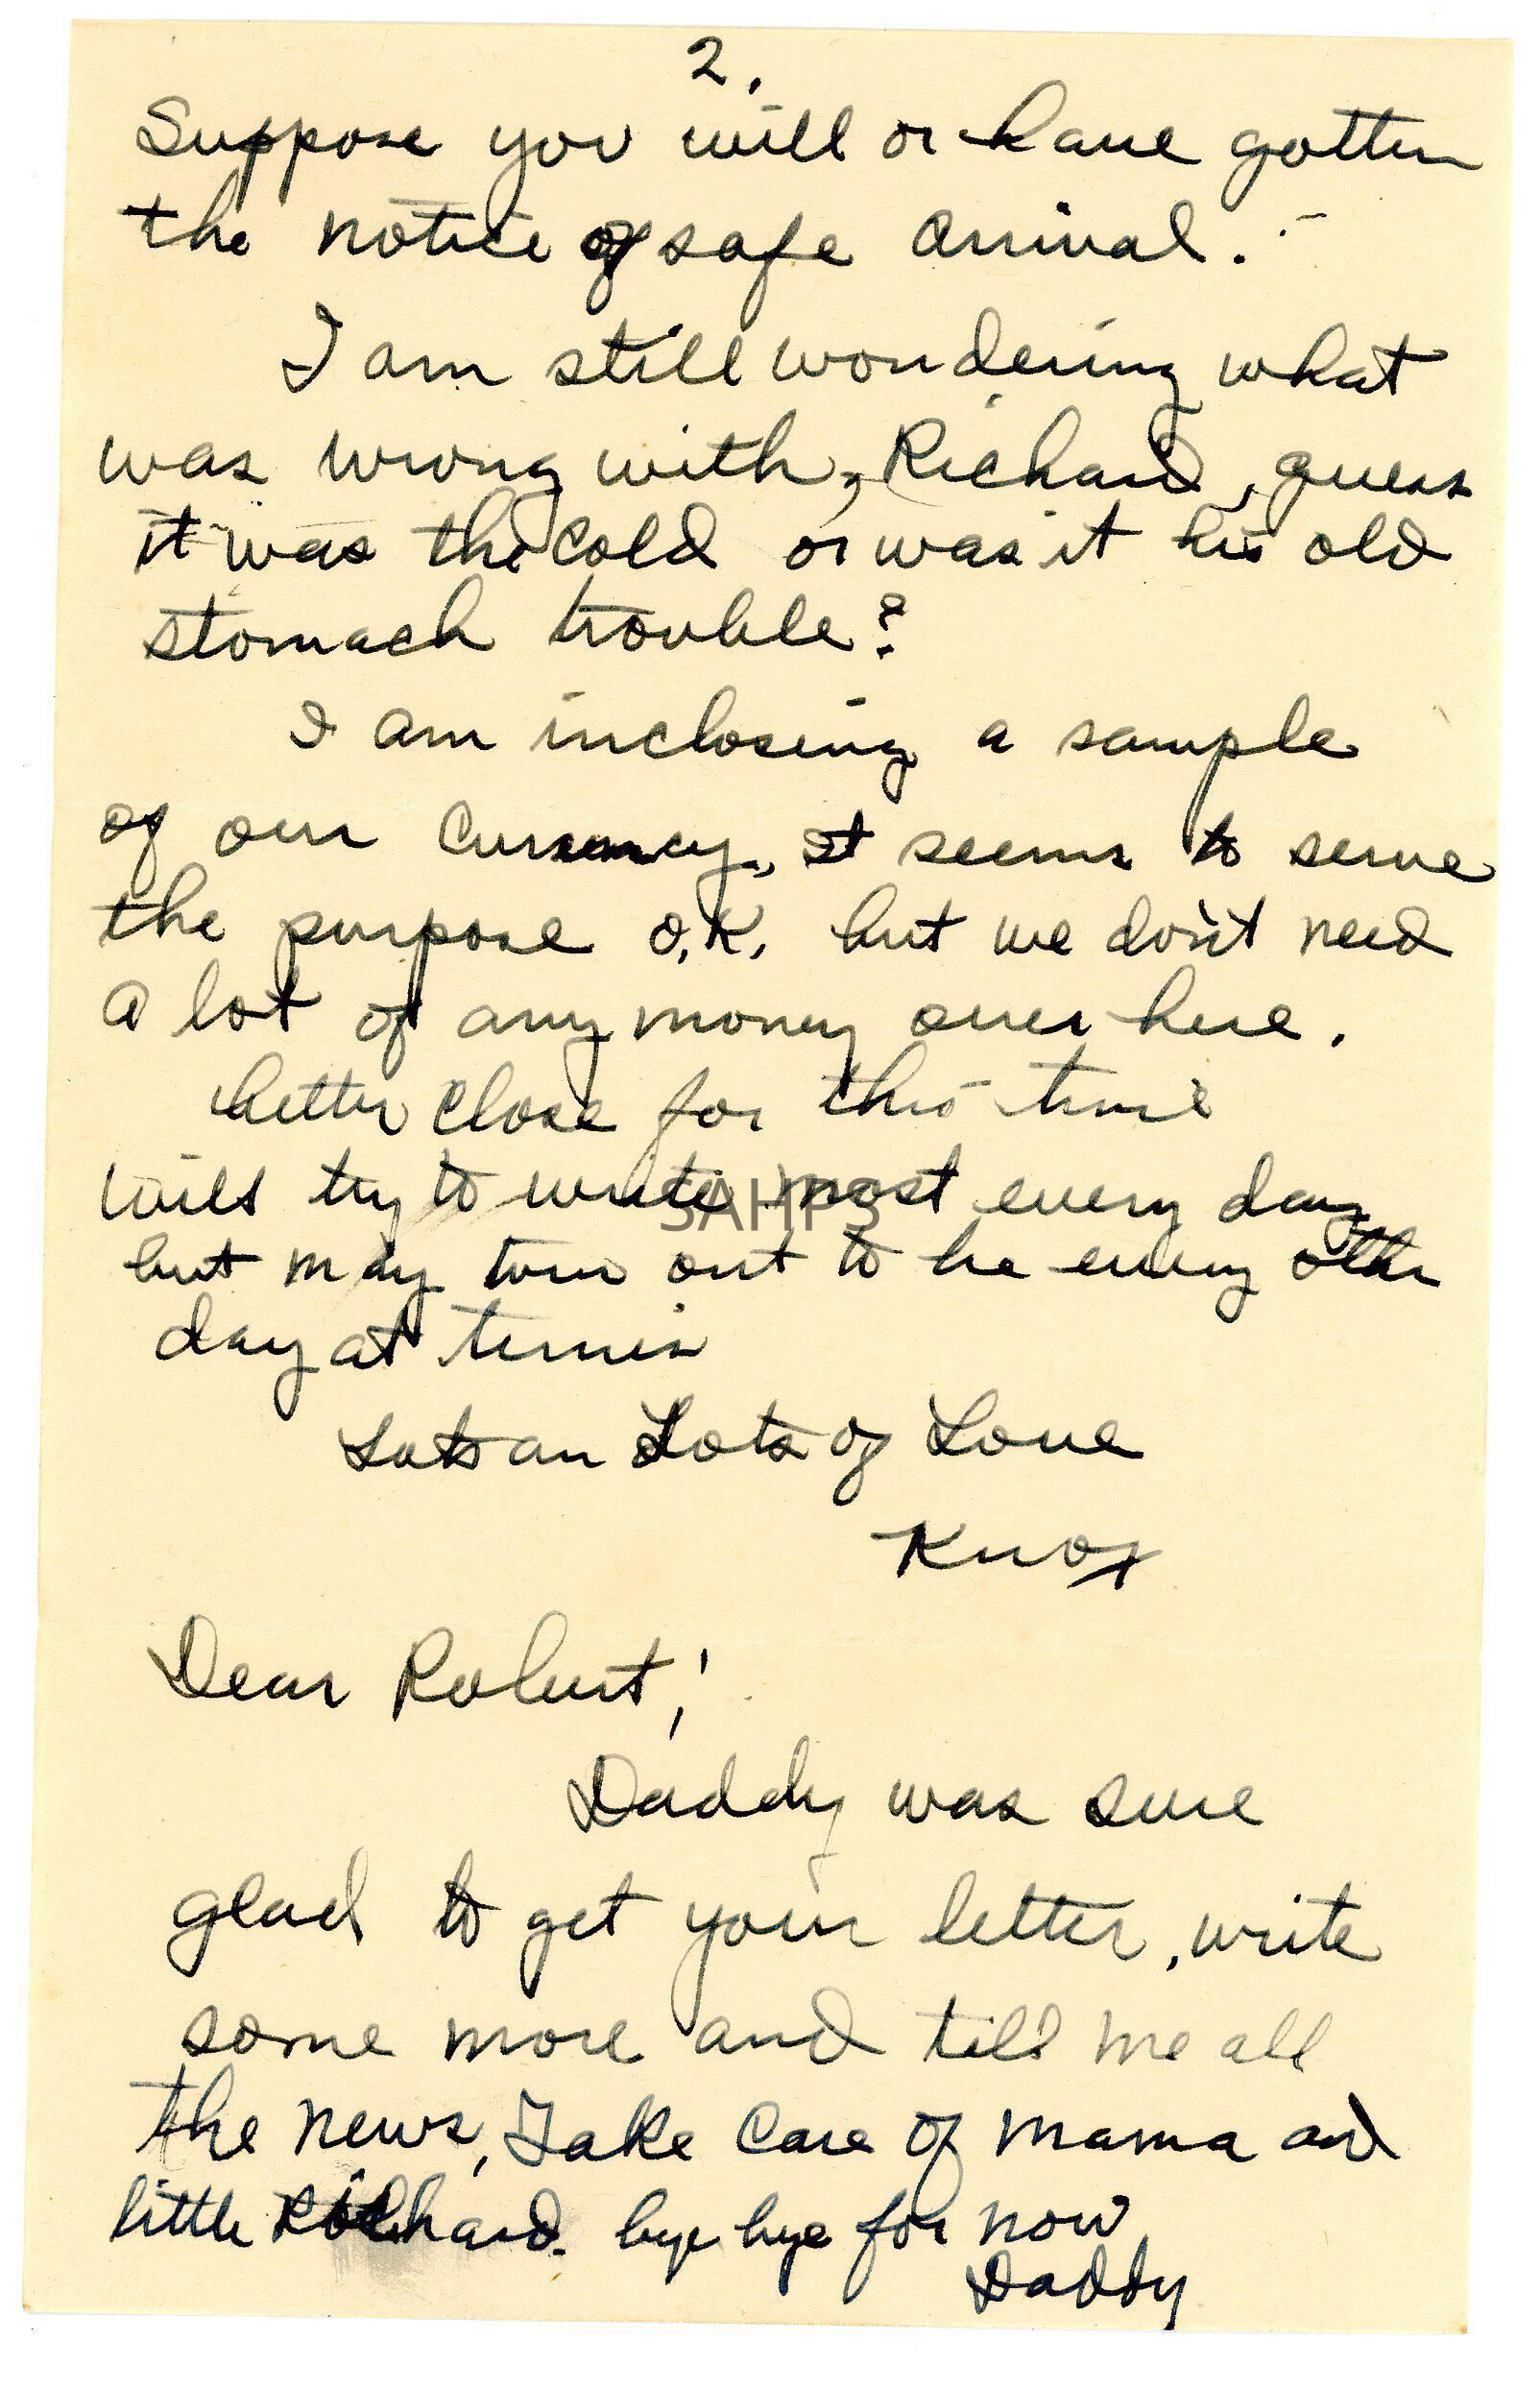 2.
Suppose you will or have gotten
the notice of safe arrival.
I am still wondering what
was wrong with, Richard, guess
it was the cold or was it his old
stomach trouble?
I am inclosing a sample
of our currency, it seems to serve
the purpose O.K. but we don't need
a lot of any money over here.
better close for this time
will try to write most every day
SAHPS
but may turn out to be every other
day at times
Lots an Lots of Love
Knox
Dear Robert,!
Daddy was sure
glad to get your letter, write
some more and tell me all
the news, Take care of mama and
little Richard. bye bye for now
Daddy